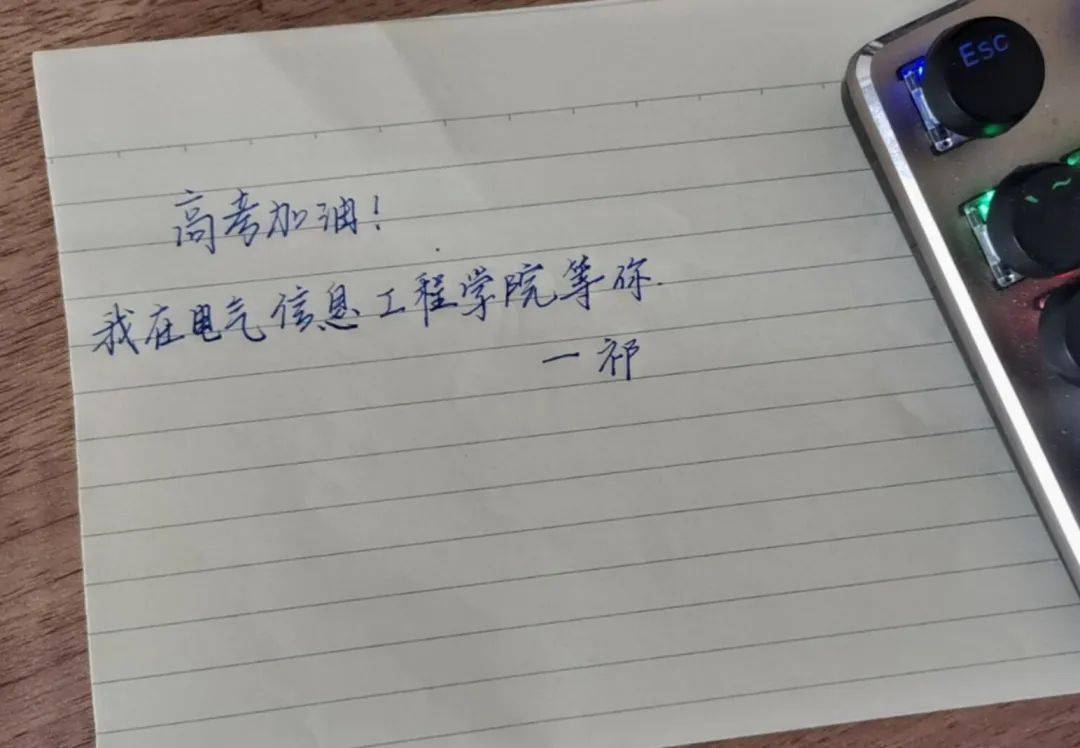 高考加油！
我在电气信息工程学院等你.
一祁
Esc
~